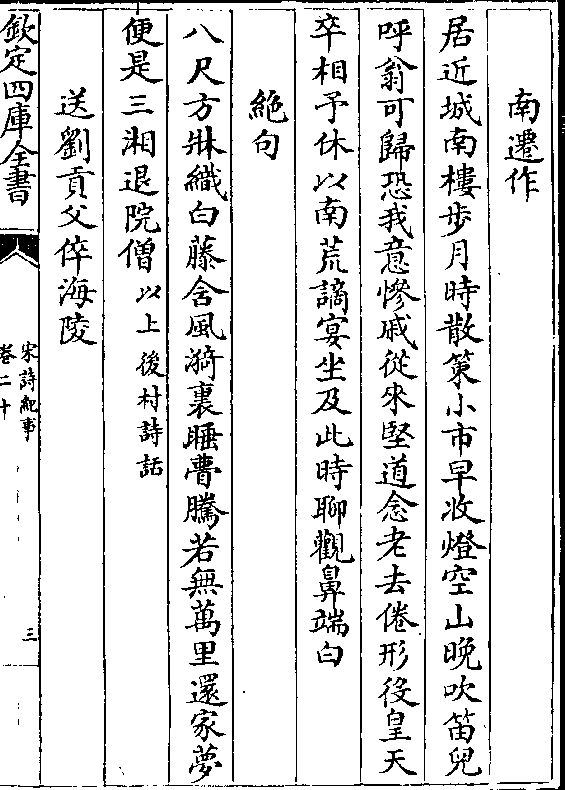 南遷作
居近城南樓步月時散策小市早收燈空山晚吹笛兒
呼翁可歸恐我意慘戚從來堅道念老去倦形役皇天
卒相予休以南荒謫宴坐及此時聊觀鼻端白
絶句
八尺方牀織白藤含風漪裏睡瞢騰若無萬里還家夢
便是三湘退院僧以上後村詩話
送劉貢父倅海陵
欽定四庫全書
宋詩紀事
卷二十
三